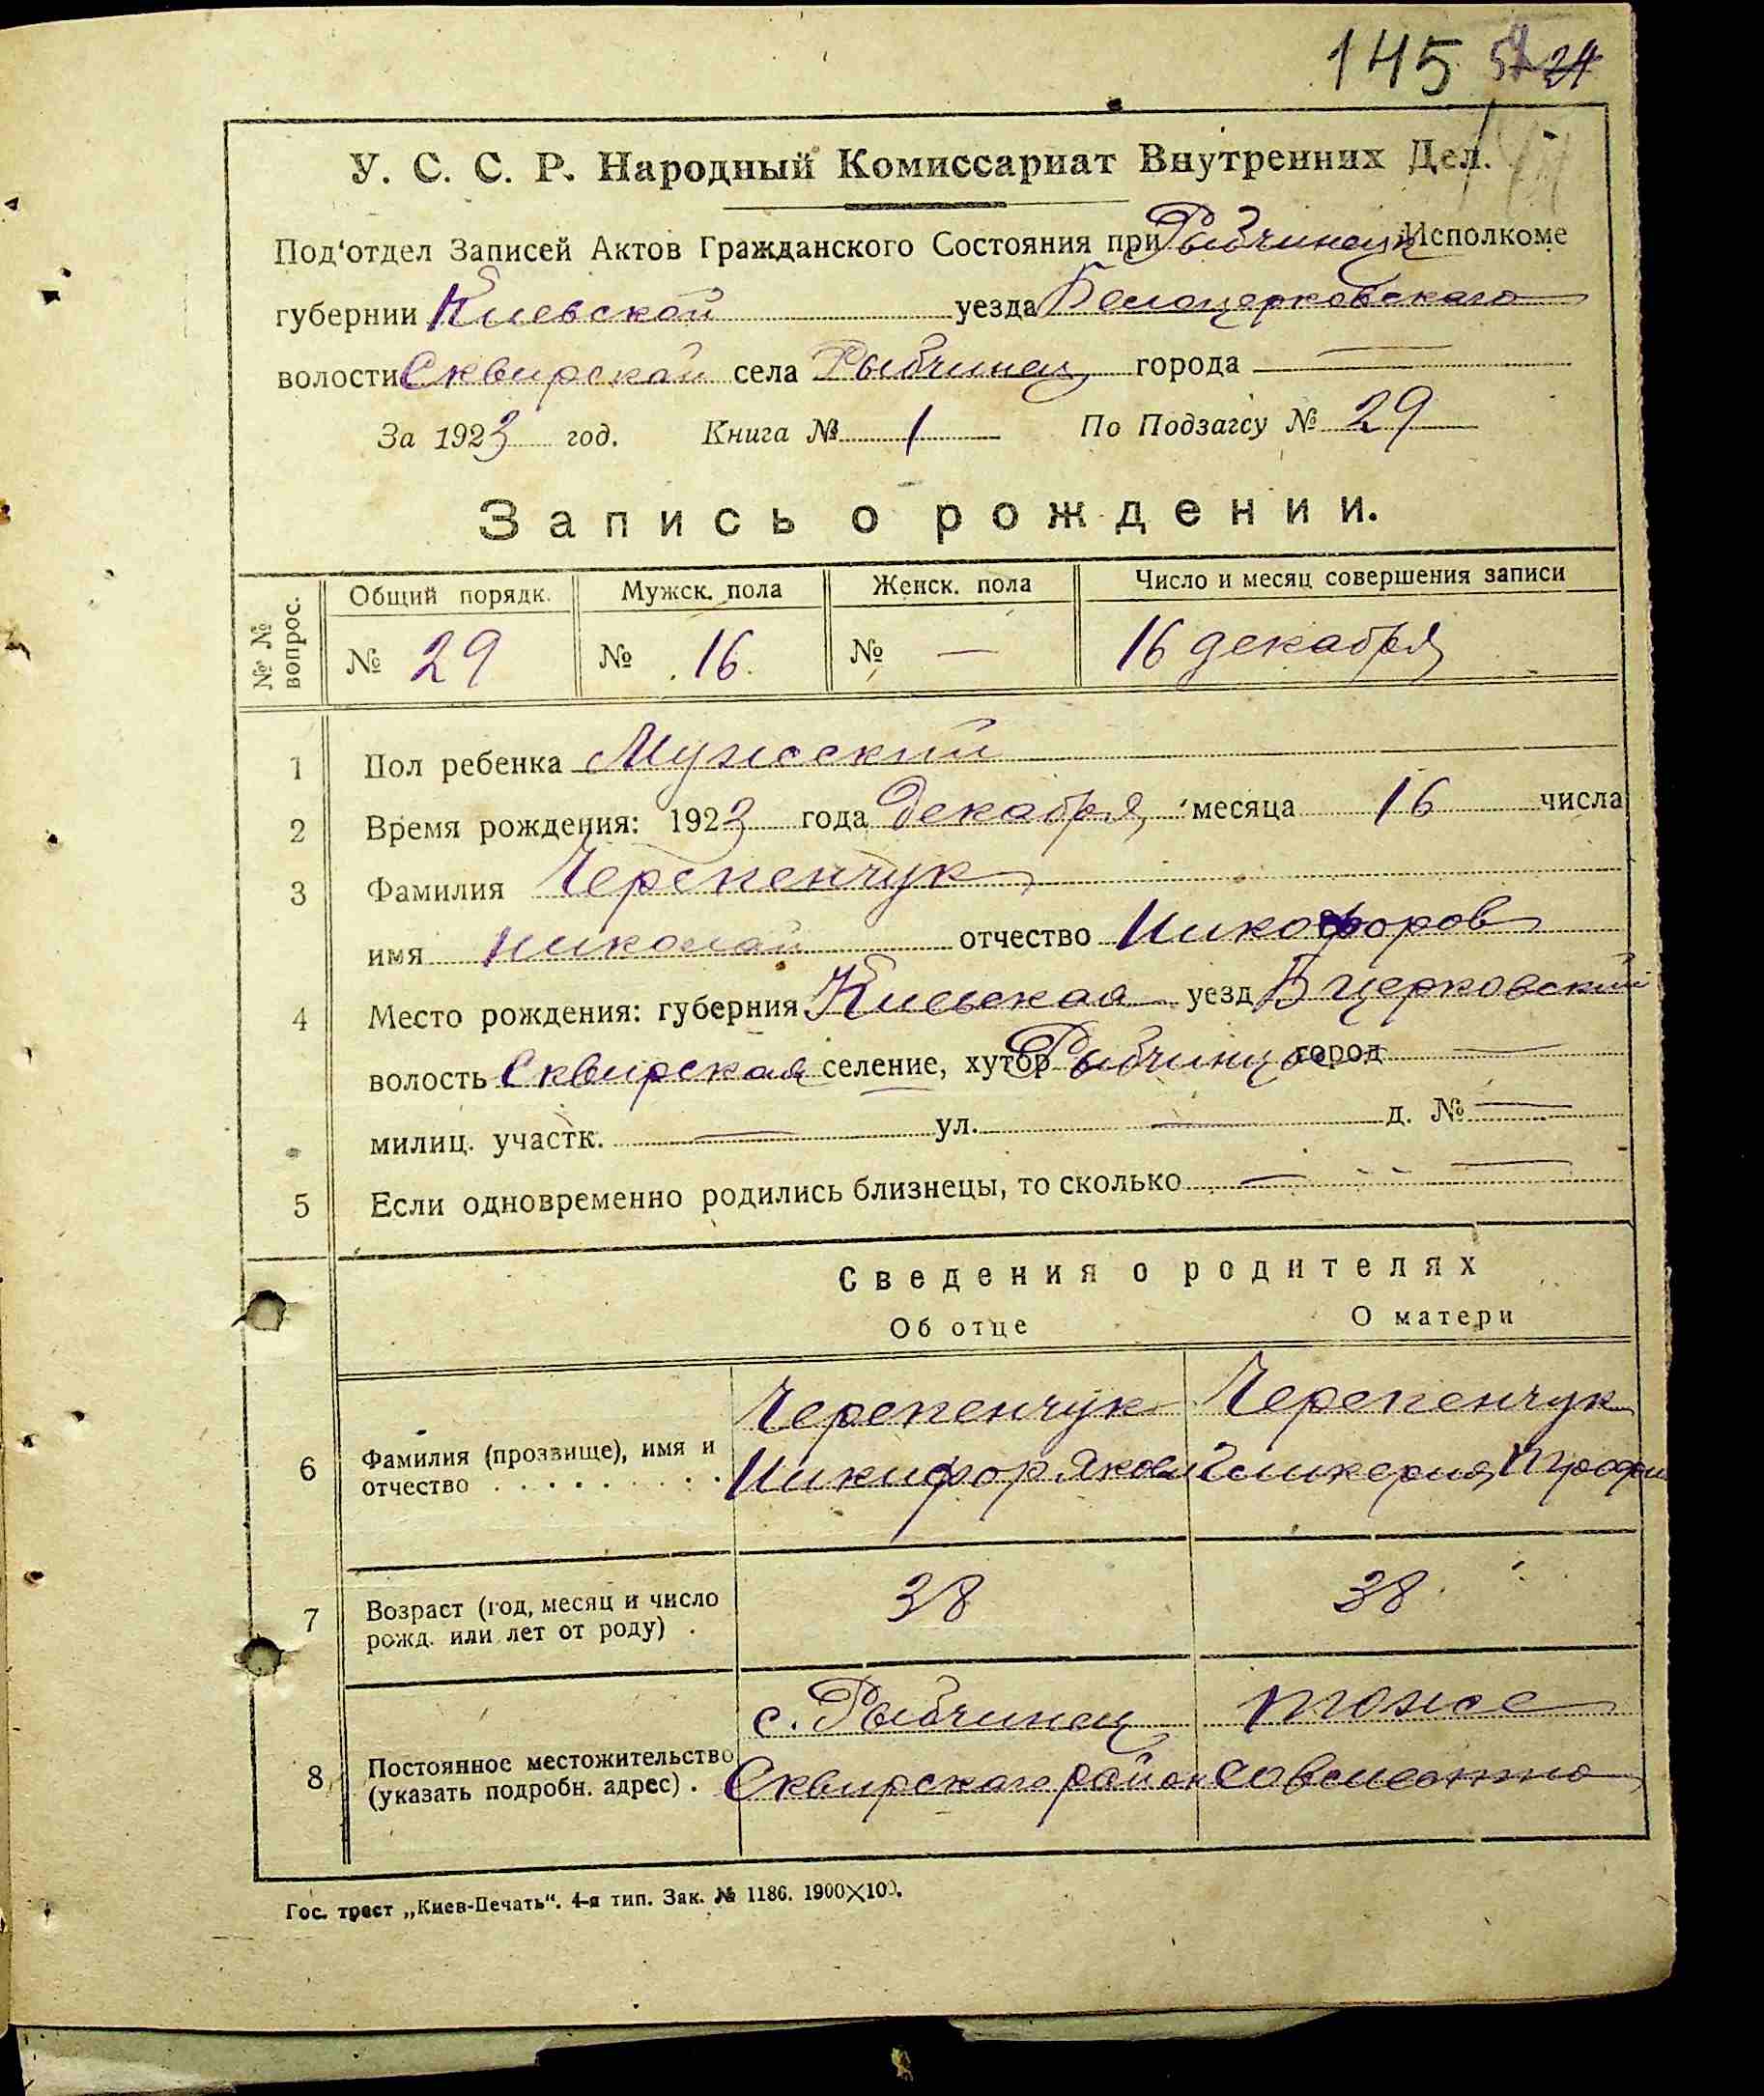 145 54 24
У. С. С. Р. Народный Комиссариат Внутренних Дел.
Под'отдел Записей Актов Гражданского Состояния при Рыбчинецк Исполкоме
губернии Киевской уезда Белоцерковского
волости Сквирской села Рыбчинец города —
За 1923 год. Книга № 1 По Подзагсу № 29
Запись о рождении.
№ № вопрос. Общий порядк. Мужск. пола Женск. пола Число и месяц совершения записи
№ 29 № 16 № — 16 декабря
1 Пол ребенка Мужеский
2 Время рождения: 1923 года Декабря месяца 16 числа
3 Фамилия Черепенчук
имя Николай отчество Никофоров
4 Место рождения: губерния Киевская уезд Бцерковский
волость Сквирская селение, хутор Рыбчинцы город —
милиц. участк. — ул. — д. № —
5 Если одновременно родились близнецы, то сколько —
Сведения о родителях
Об отце О матери
Черепенчук Черепенчук
6 Фамилия (прозвище), имя и
отчество Никифор Яковл Гликерия Трофи
7 Возраст (год, месяц и число
рожд. или лет от роду) . 38 38
с. Рыбчинец тоже
8 Постоянное местожительство
(указать подробн. адрес) . Сквирского район совместно
Гос. трест „Киев-Печать“. 4-я тип. Зак. № 1186. 1900×100.